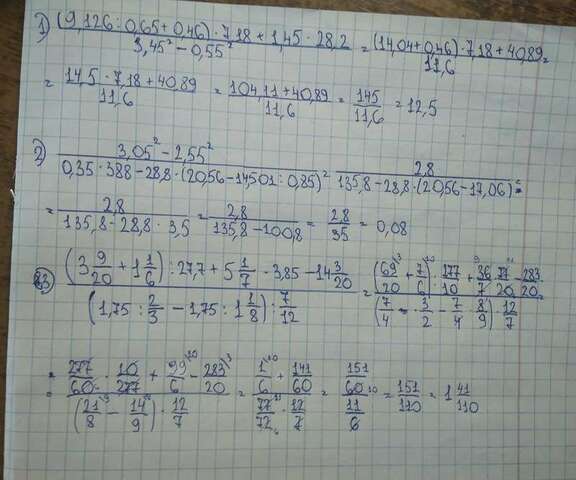 1) ((9,126 : 0,65 + 0,46) · 7,18 + 1,45 · 28,2) / (3,45² − 0,55²) = ((14,04 + 0,46) · 7,18 + 40,89) / 11,6 =
= (14,5 · 7,18 + 40,89) / 11,6 = (104,11 + 40,89) / 11,6 = 145 / 11,6 = 12,5
2) (3,05² − 2,55²) / (0,35 · 388 − 28,8 · (20,56 − 14,501 : 0,85)) = 2,8 / (135,8 − 28,8 · (20,56 − 17,06)) =
= 2,8 / (135,8 − 28,8 · 3,5) = 2,8 / (135,8 − 100,8) = 2,8 / 35 = 0,08
3) ((3 9/20 + 1 1/6) : 27,7 + 5 1/7 · 3,85 − 14 3/20) / ((1,75 : 2/3 − 1,75 : 1 1/8) : 7/12) =
= (277/60 · 10/277 + 99/6 − 283/20) / ((21/8 − 14/9) · 12/7) = (1/6 + 141/60) / (77/72 · 12/7) = (151/60) / (11/6) = 151/110 = 1 41/110